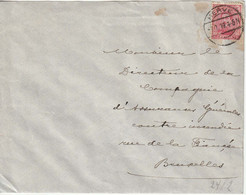 Monsieur le
Directeur de la
Compagnie
d'Assurances Générales
contre incendie
rue de la
Bruxelles